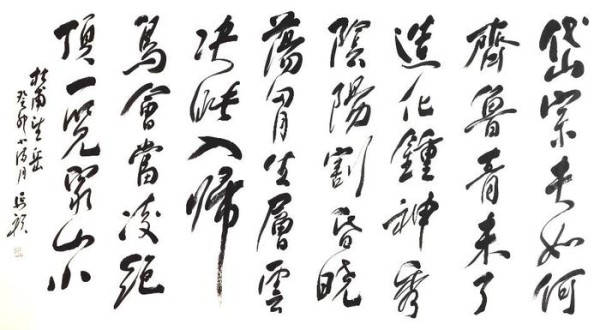 岱宗夫如何
齊魯青未了
造化鍾神秀
陰陽割昏曉
蕩胸生層雲
決眥入歸
鳥會當凌絕
頂一覽眾山小
杜甫望岳
癸卯小滿月